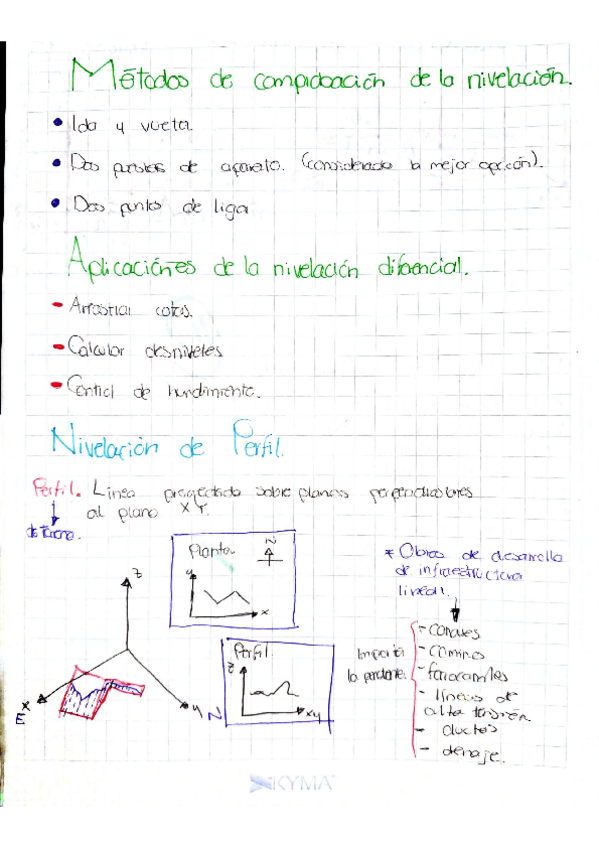 Métodos de comprobación de la nivelación.
• Ida y vuelta.
• Dos puestas de aparato. (considerada la mejor opción).
• Dos puntos de liga
Aplicaciónes de la nivelación diferencial.
- Arrastrar cotas.
- Calcular desniveles
- Control de hundimiento.
Nivelación de Perfil.
Perfil. Línea proyectada sobre planos perpendiculares
al plano XY.
de terreno.
Planta.
N
y
x
z
x
E
y
N
Perfil.
z
xy
* Obras de desarrollo
de infraestructura
lineal.
Importa
la pendiente.
- canales
- caminos
- ferrocarriles
- líneas de
alta tensión
- ductos
- drenaje.
KYMA